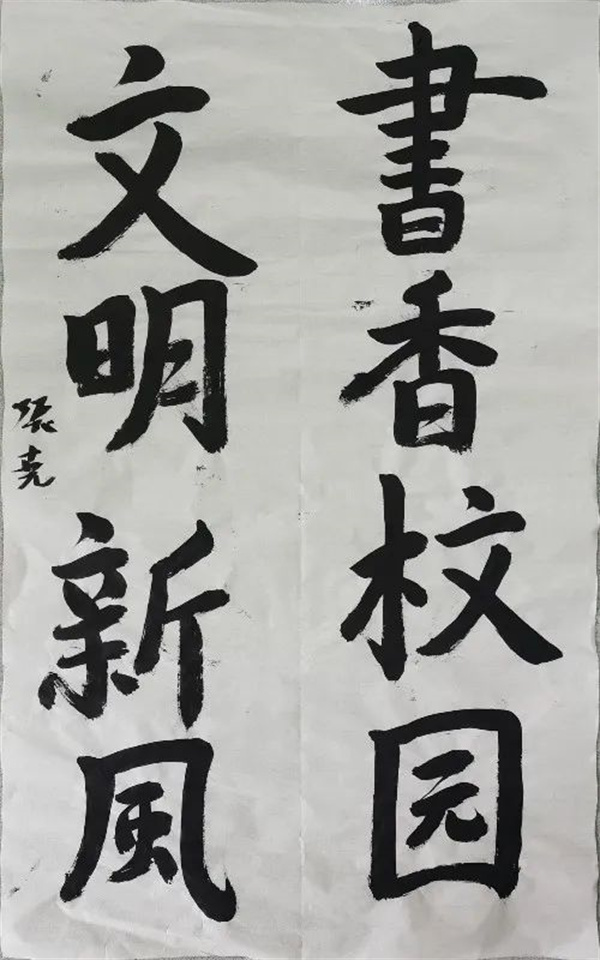 書香校园
文明新風
张